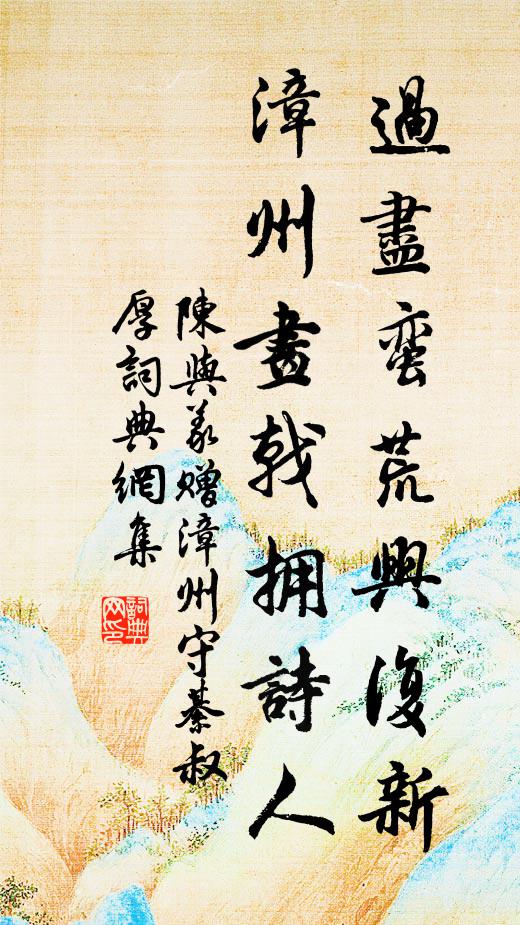 過盡蠻荒興復新
漳州畫戟擁詩人
陳與義贈漳州守綦叔
厚詞典網集
詞典
網印